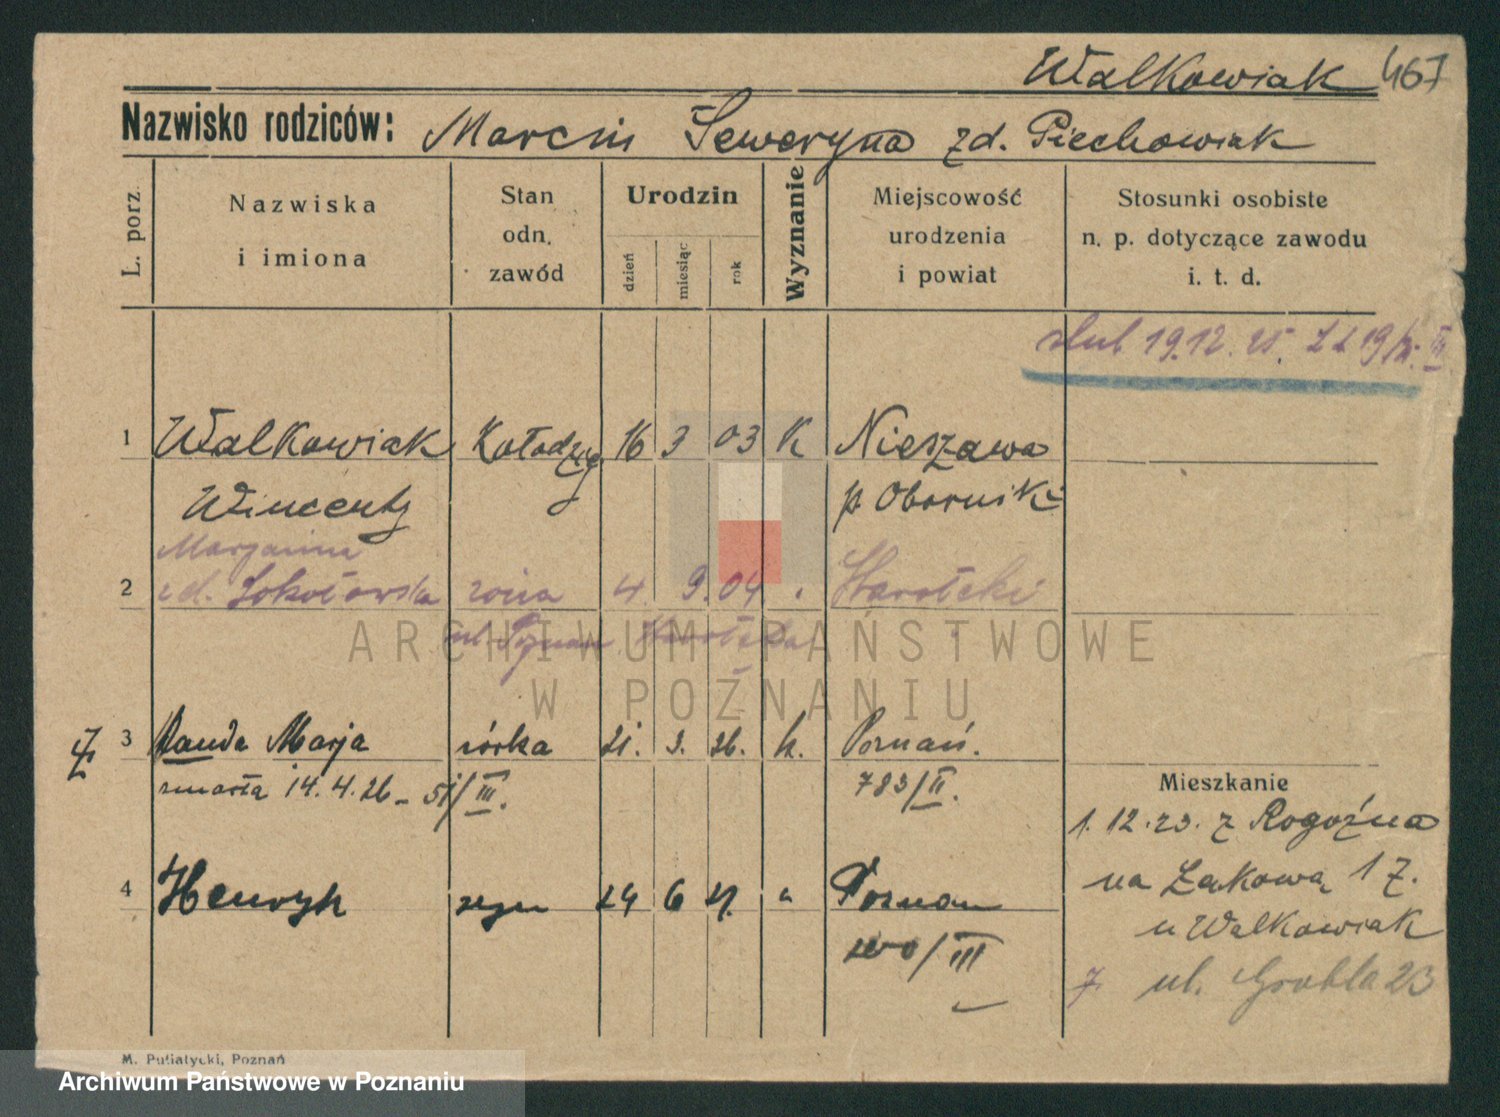 Walkowiak 467
Nazwisko rodziców: Marcin Seweryna zd. Piechowiak
L. porz.
Nazwiska
i imiona
Stan
odn.
zawód
Urodzin
dzień
miesiąc
rok
Wyznanie
Miejscowość
urodzenia
i powiat
Stosunki osobiste
n. p. dotyczące zawodu
i. t. d.
ślub 19.12.25.
1 Walkowiak Kołodziej 16 3 03 K Nieszawa
Wincenty p. Oborniki
Marjanna
2 zd. Sokołowska żona 4. 9. 04 Starołęki
3 Wanda Marja córka 21. 3. 26. k. Poznań.
zmarła 14.4.26 - 51/III. 783/II.
4 Henryk syn 24 6 27. " Poznań
/III
Mieszkanie
1.12.23. z Rogoźna
na Łąkową 17.
u Walkowiak
7. ul. Grobla 23
M. Putiatycki, Poznań
ARCHIWUM PAŃSTWOWE
W POZNANIU
Archiwum Państwowe w Poznaniu